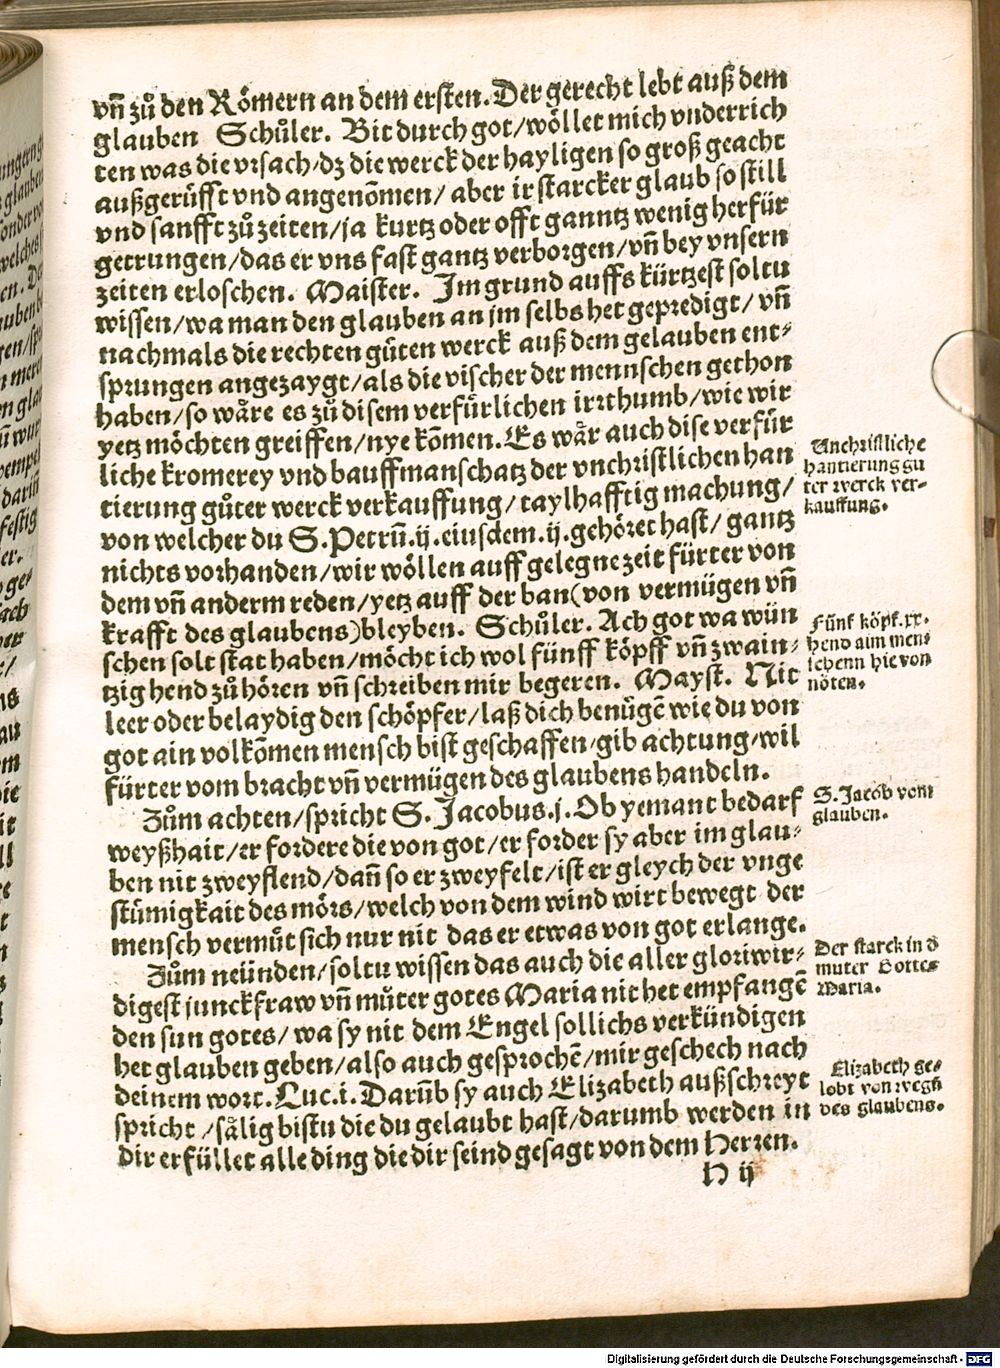 vñ zů den Römern an dem ersten. Der gerecht lebt auß dem
glauben Schůler. Bit durch got/wöllet mich vnderrich
ten was die vrsach/dz die werck der hayligen so groß geacht
außgerüfft vnd angenõmen/ aber ir starcker glaub so still
vnd sanfft zů zeiten/ja kurtz oder offt ganntz wenig herfür
getrungen/das er vns fast gantz verborgen/vñ bey vnsern
zeiten erloschen. Maister. Jm grund auffs kürtzest soltu
wissen/wa man den glauben an jm selbs het gepredigt/ vñ
nachmals die rechten gůten werck auß dem gelauben ent⸗
sprungen angezaygt/als die vischer der mennschen gethon
haben/so wåre es zů disem verfürlichen irrthumb/wie wir
yetz möchten greiffen/nye kõmen. Es wår auch dise verfür
liche kromerey vnd bauffmanschatz der vnchristlichen han
tierung gůter werck verkauffung/ taylhafftig machung/
von welcher du S. Petrũ.ij.eiusdem.ij.gehöret hast/ gantz
nichts vorhanden/wir wöllen auff gelegne zeit fürter von
dem vñ anderm reden/yetz auff der ban(von vermügen vñ
krafft des glaubens)bleyben. Schůler. Ach got wa wün
schen solt stat haben/möcht ich wol fünff köpff vñ zwain⸗
tzig hend zů hören vñ schreiben mir begeren. Mayst. Nit
leer oder belaydig den schöpfer/laß dich benügẽ wie du von
got ain volkõmen mensch bist geschaffen/gib achtung/wil
fürter vom bracht vñ vermügen des glaubens handeln.
Zům achten/spricht S. Jacobus.j. Ob yemant bedarf
weyßhait/er fordere die von got/er forder sy aber im glau⸗
ben nit zweyflend/dañ so er zweyfelt/ist er gleych der vnge
stümigkait des mörs/welch von dem wind wirt bewegt der
mensch vermůt sich nur nit das er etwas von got erlange.
Zům neünden/soltu wissen das auch die aller gloriwir⸗
digest junckfraw vñ můter gotes Maria nit het empfangẽ
den sun gotes/ wa sy nit dem Engel sollichs verkündigen
het glauben geben/also auch gesprochẽ/mir geschech nach
deinem wort. Luc.i. Darũb sy auch Elizabeth außschreyt
spricht /sålig bistu die du gelaubt hast/darumb werden in
dir erfüllet alle ding die dir seind gesagt von dem Herren.
H ij
Vnchristliche
hantierung gu
ter werck ver⸗
kauffung.
Fünf köpf.xx.
hend aim men⸗
schenn hie von
nöten.
S. Jacob vom
glauben.
Der starck in d̕
muter Gottes
Maria.
Elizabeth ge⸗
lobt von wegẽ
des glaubens.
Digitalisierung gefördert durch die Deutsche Forschungsgemeinschaft - DFG